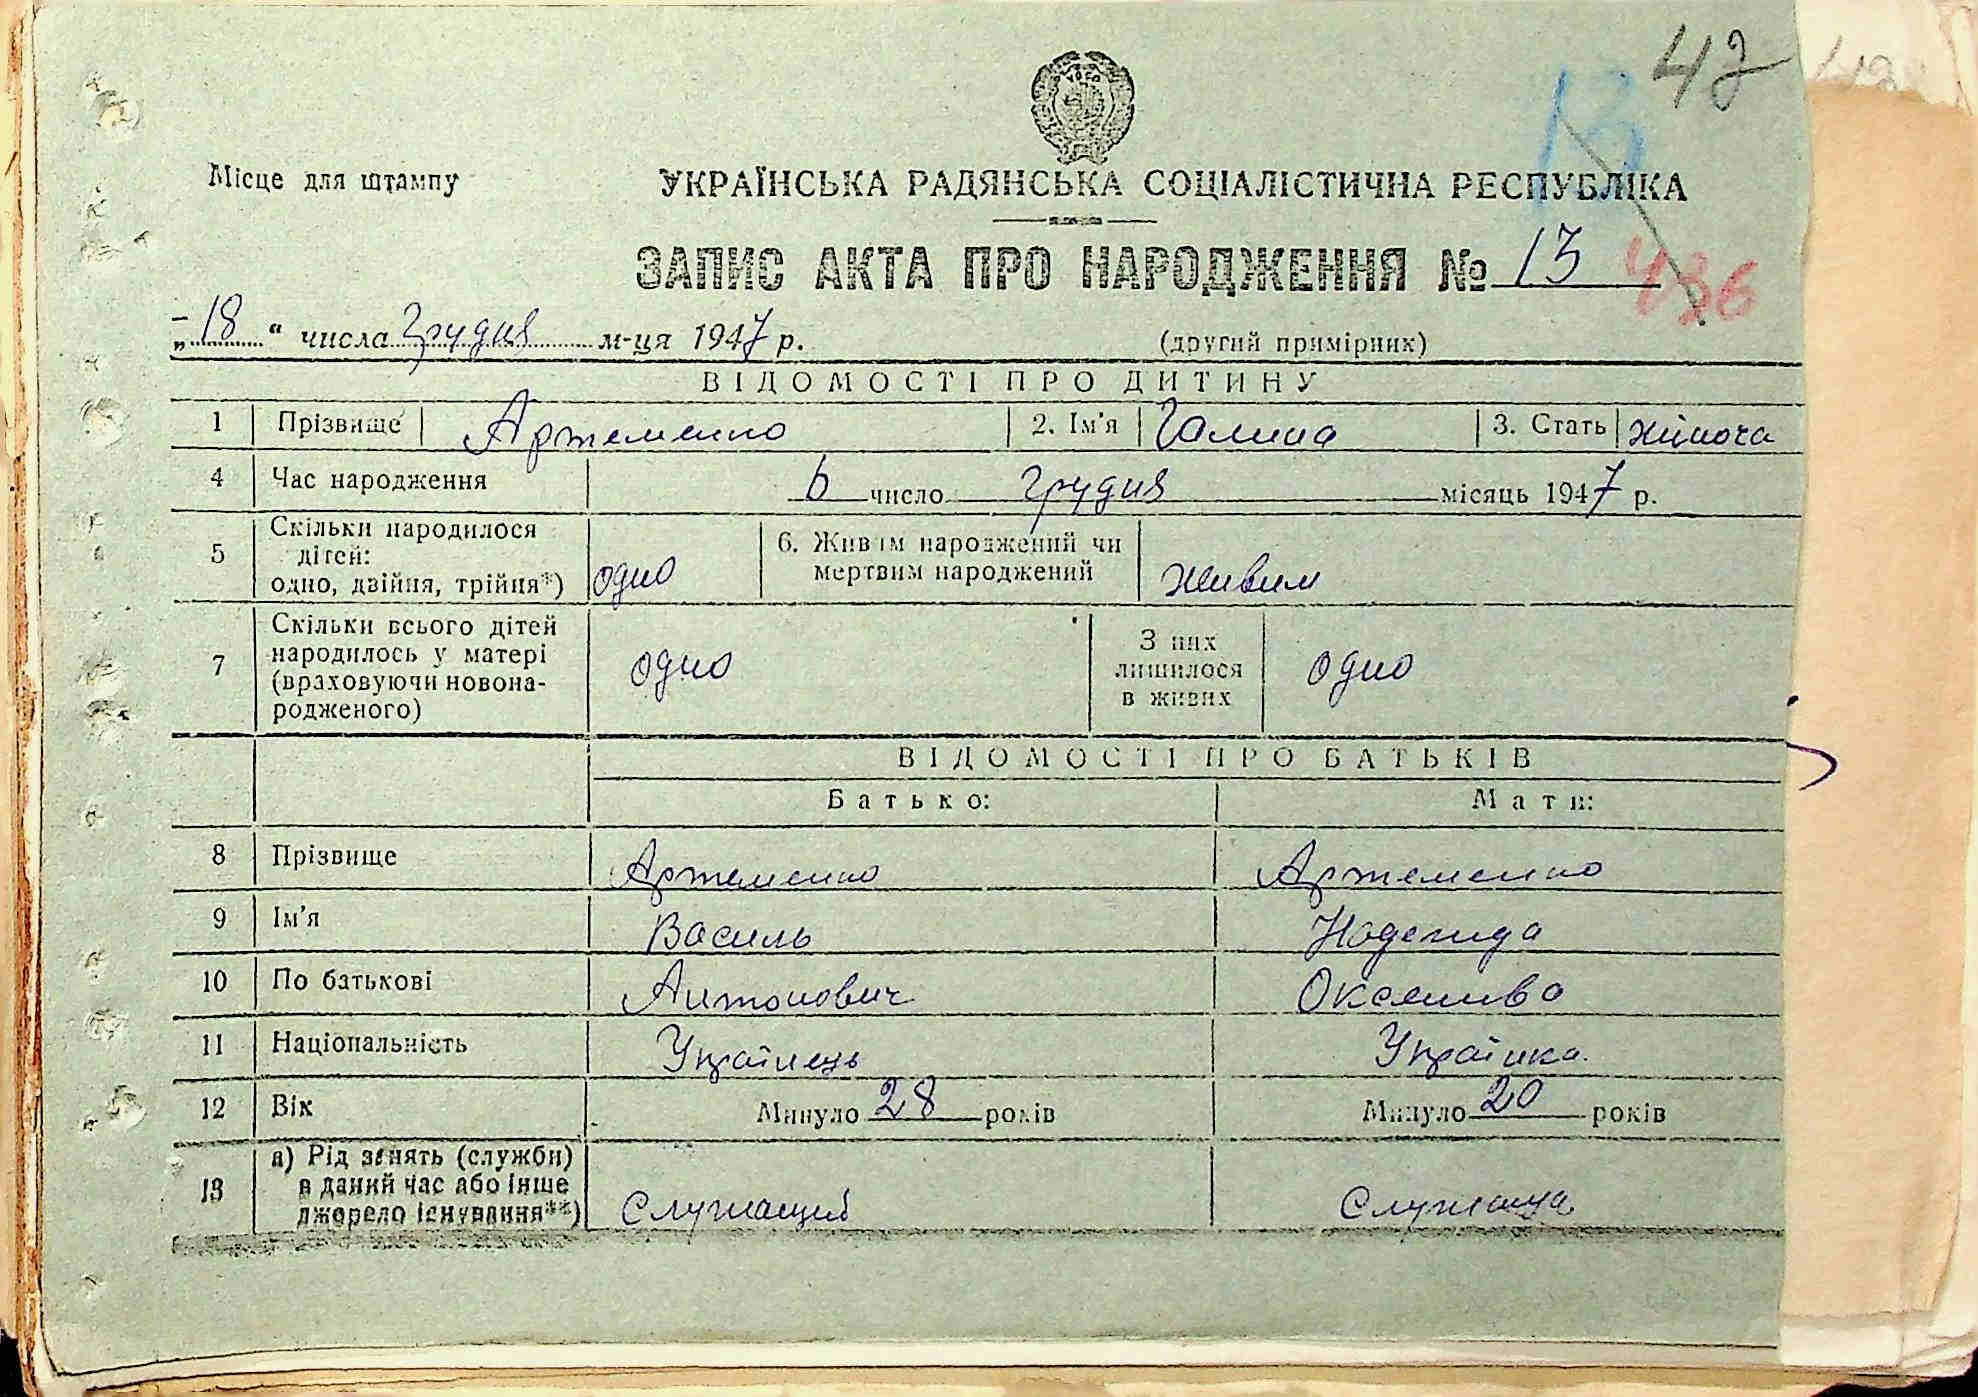 47
13
Місце для штампу
УКРАЇНСЬКА РАДЯНСЬКА СОЦІАЛІСТИЧНА РЕСПУБЛІКА
ЗАПИС АКТА ПРО НАРОДЖЕННЯ № 13
436
„18“ числа Грудня м-ця 1947 р. (другий примірник)
ВІДОМОСТІ ПРО ДИТИНУ
1 Прізвище Артеменко 2. Ім'я Галина 3. Стать жіноча
4 Час народження 6 число грудня місяць 1947 р.
5 Скільки народилося
дітей:
одно, двійня, трійня*) одно 6. Живим народжений чи
мертвим народжений живим
7 Скільки всього дітей
народилось у матері
(враховуючи новона-
родженого) одно З них
лишилося
в живих одно
ВІДОМОСТІ ПРО БАТЬКІВ
Батько: Мати:
8 Прізвище Артеменко Артеменко
9 Ім'я Василь Надежда
10 По батькові Антонович
11 Національність Українець Українка
12 Вік Минуло 28 років Минуло 20 років
13 а) Рід занять (служби)
в даний час або інше
джерело існування**) Служащий Служаща